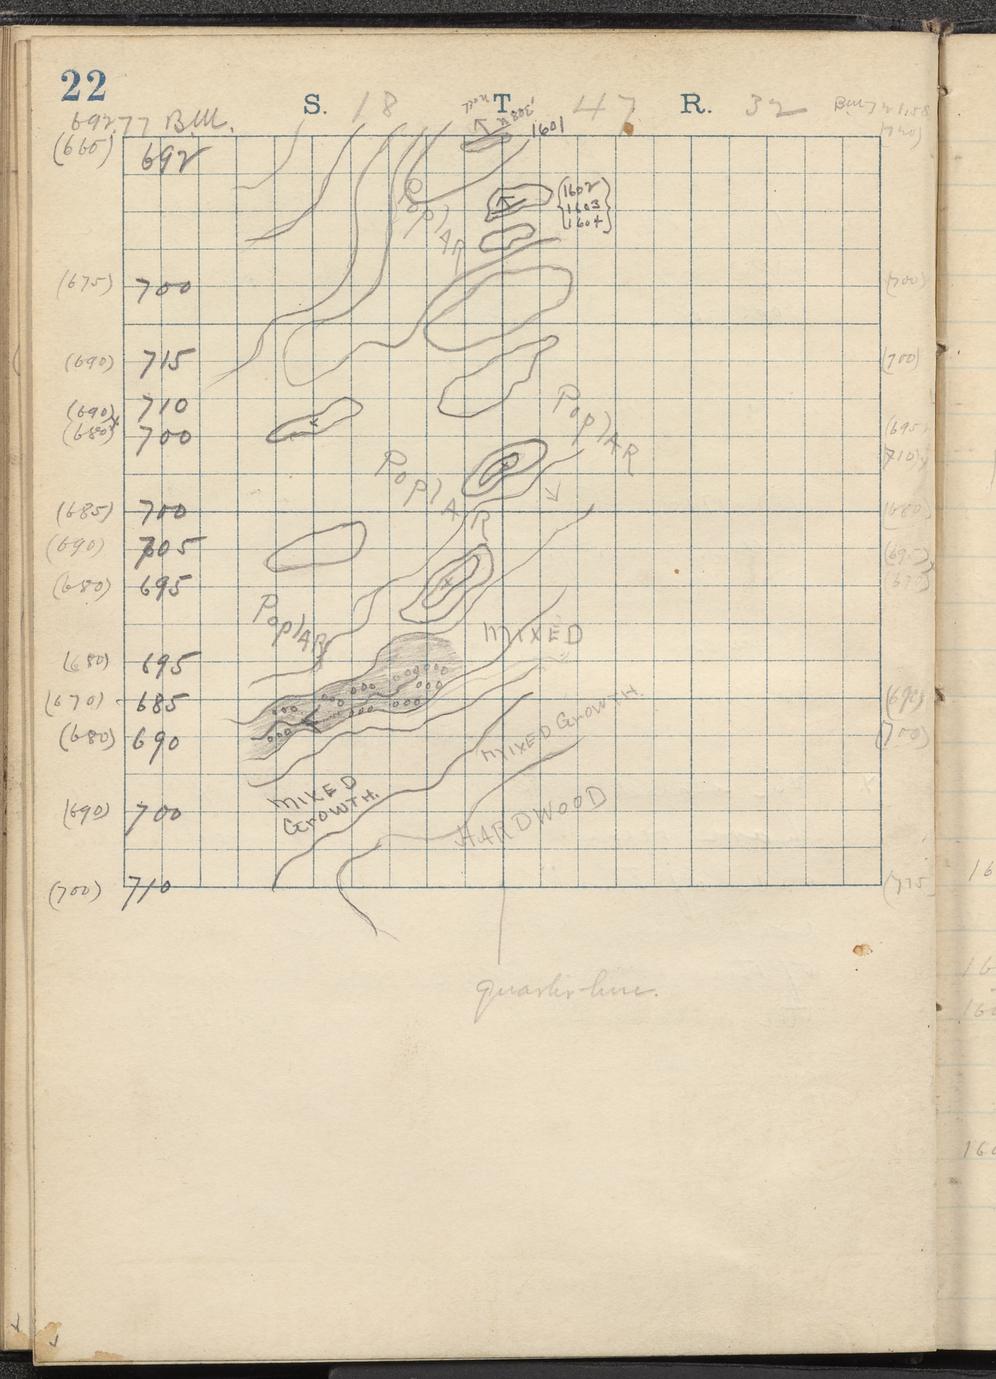 22
S. 18 T. 47 R. 32
692.77 B.M.
1601
(660) 692
1602
1603
1604
PoplAR
(675) 700 (700)
(690) 715 (700)
(690) 710
(680) 700 (695)
PoplAR
710
PoplAR
(685) 700 (680)
(690) 705 (690)
(680) 695 (670)
PoplAR
MIXED
(680) 695
(670) 685 (690)
(680) 690 (700)
MIXED GROWTH.
MIXED
GROWTH.
(690) 700
HARDWOOD
(700) 710 (715
quarter-line.
16
16
160
160